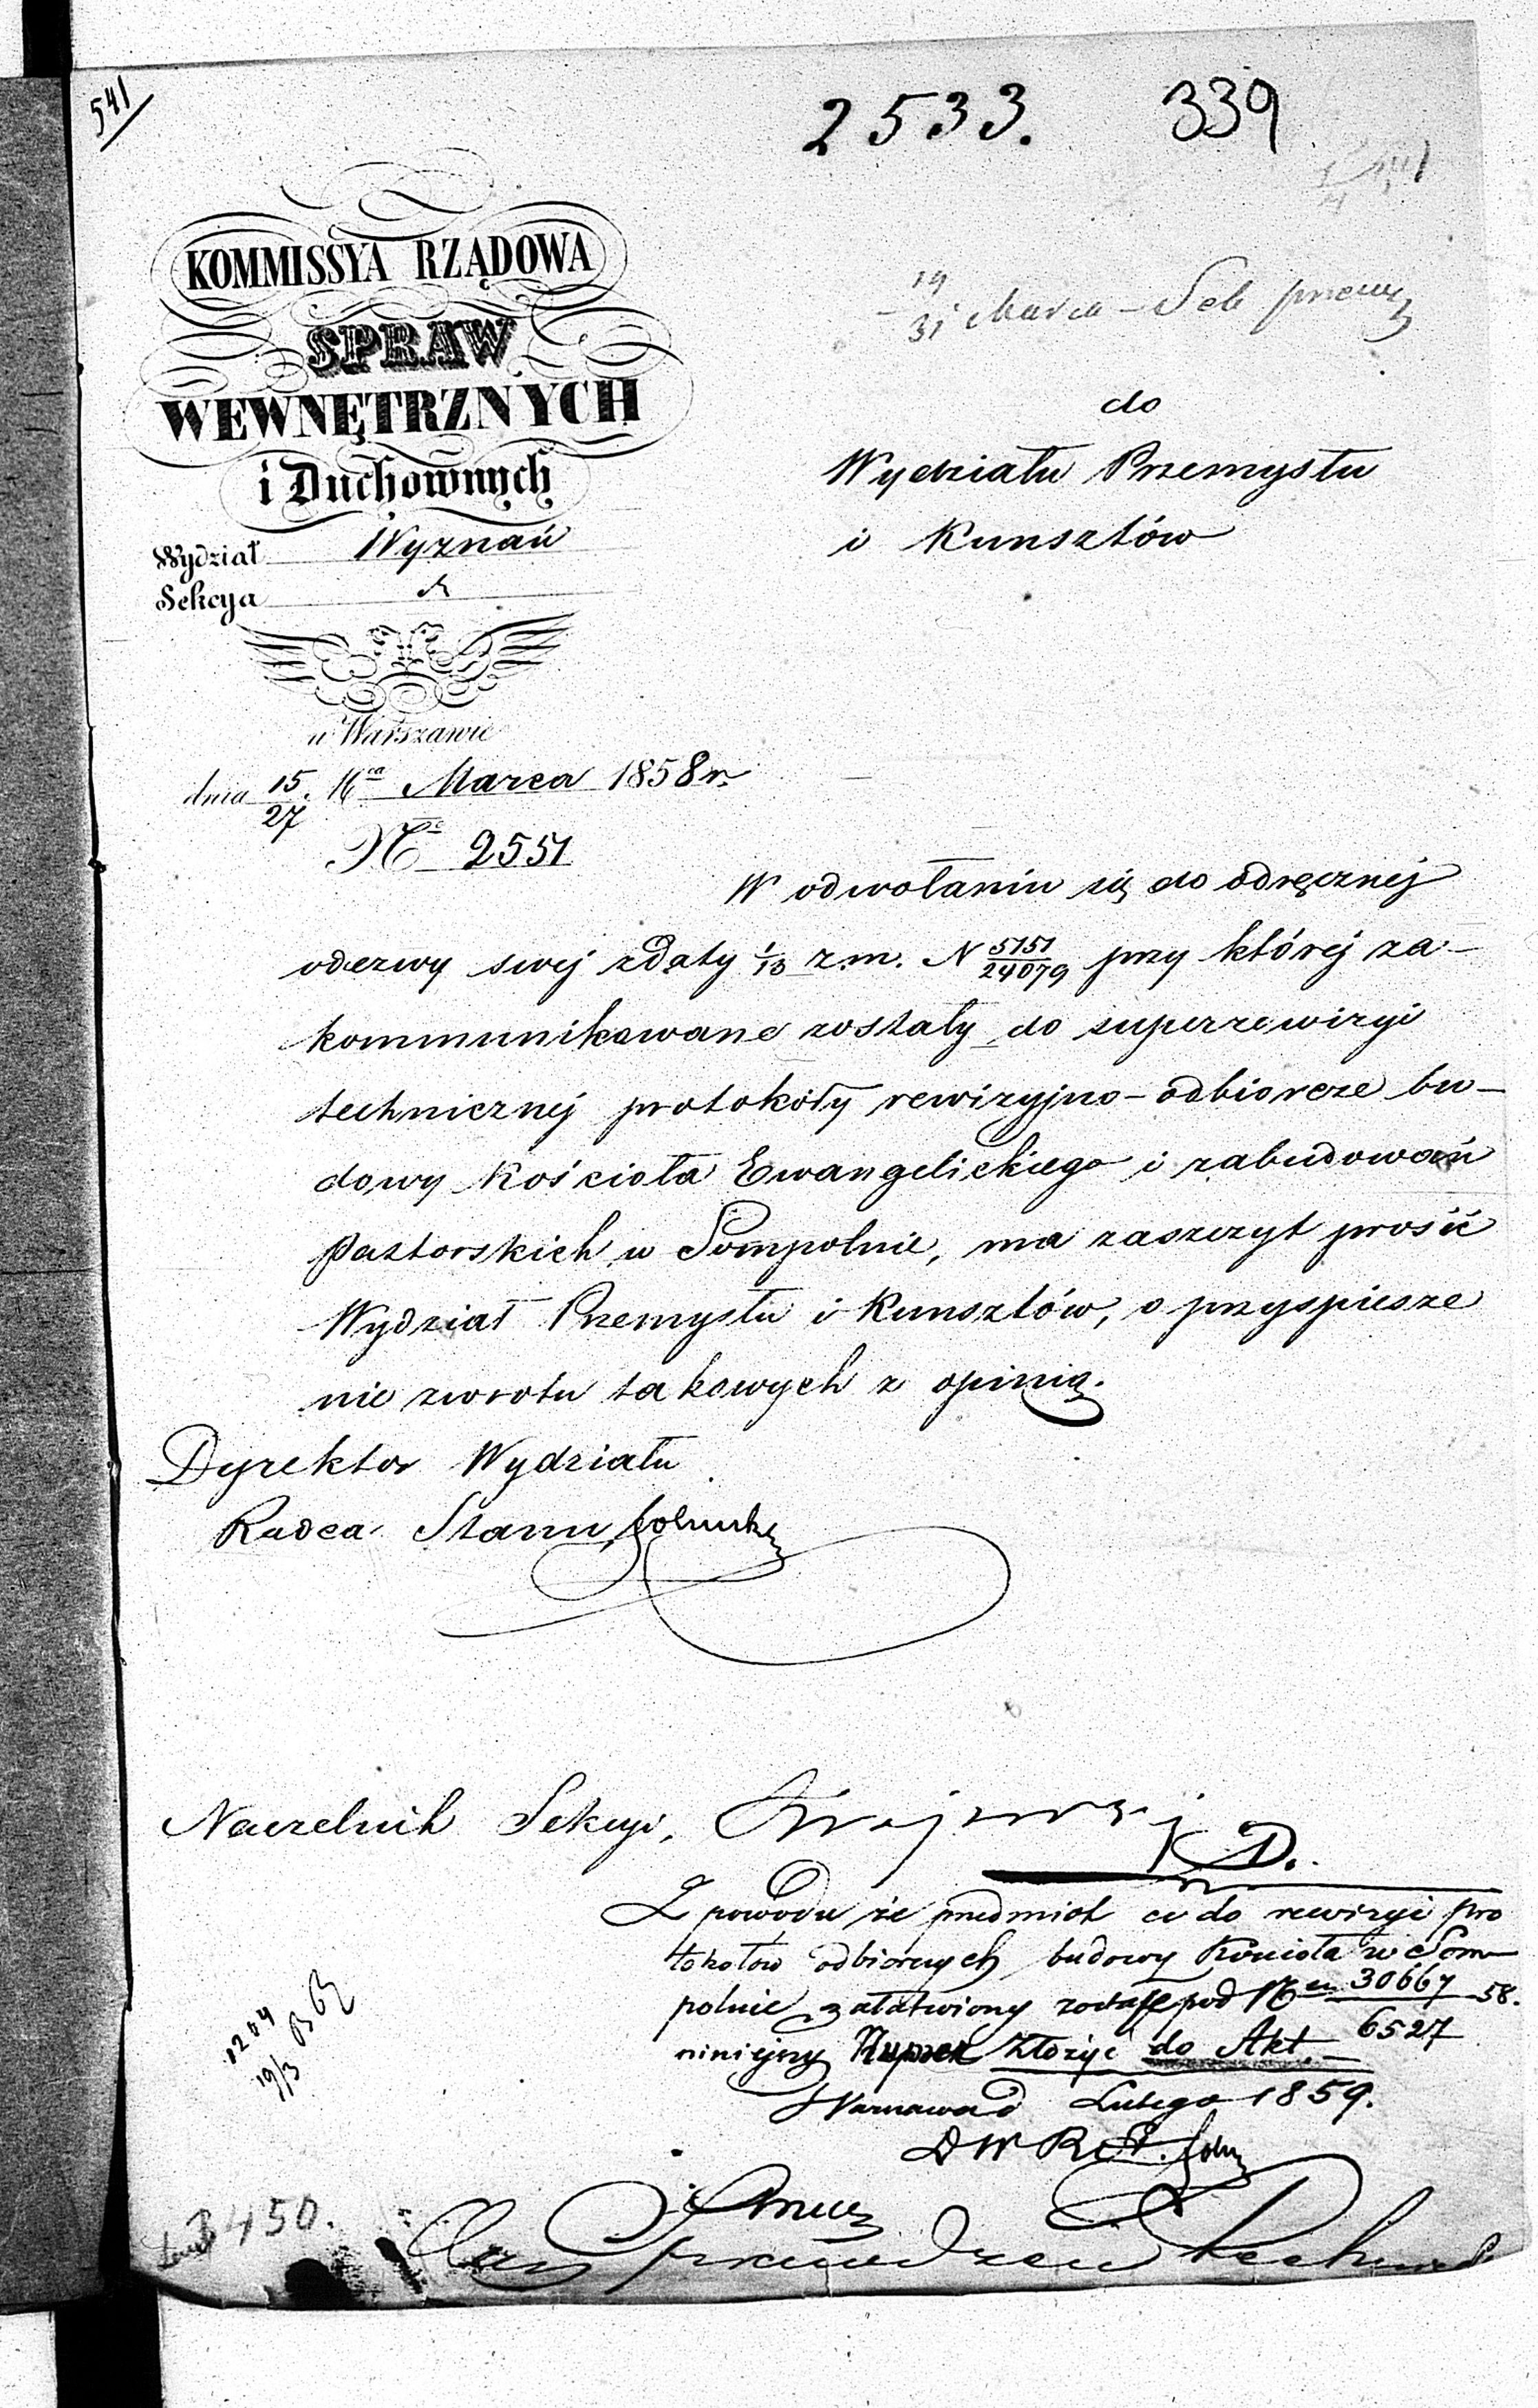 541
2533. 339
19/31 Marca
KOMMISSYA RZĄDOWA
SPRAW
WEWNĘTRZNYCH
i Duchownych
Wydział Wyznań
Sekcya
w Warszawie
dnia 15/27 Marca 1858 r.
No 2551
do
Wydziału Przemysłu
i Kunsztów
W odwołaniu się do odręcznej
odezwy swej z daty 1/13 z.m. N 5151/24079 przy której za-
kommunikowane zostały do superrewizyi
technicznej protokóły rewizyjno-odbiorcze bu-
dowy Kościoła Ewangelickiego i zabudowań
Pastorskich w Sompolnie, ma zaszczyt prosić
Wydział Przemysłu i Kunsztów, o przyspiesze
nie zwrotu takowych z opinią.
Dyrektor Wydziału
Radca Stanu
Naczelnik Sekcyi,
D.
Z powodu że przedmiot co do rewizyi pro
tokołów odbiorczych budowy Kościoła w Som
polnie załatwiony został pod No 30667/6527 58.
niniejszy złożyć do Akt.
Warszawa d Lutego 1859.
D W R St.
1204
19/3
3450.